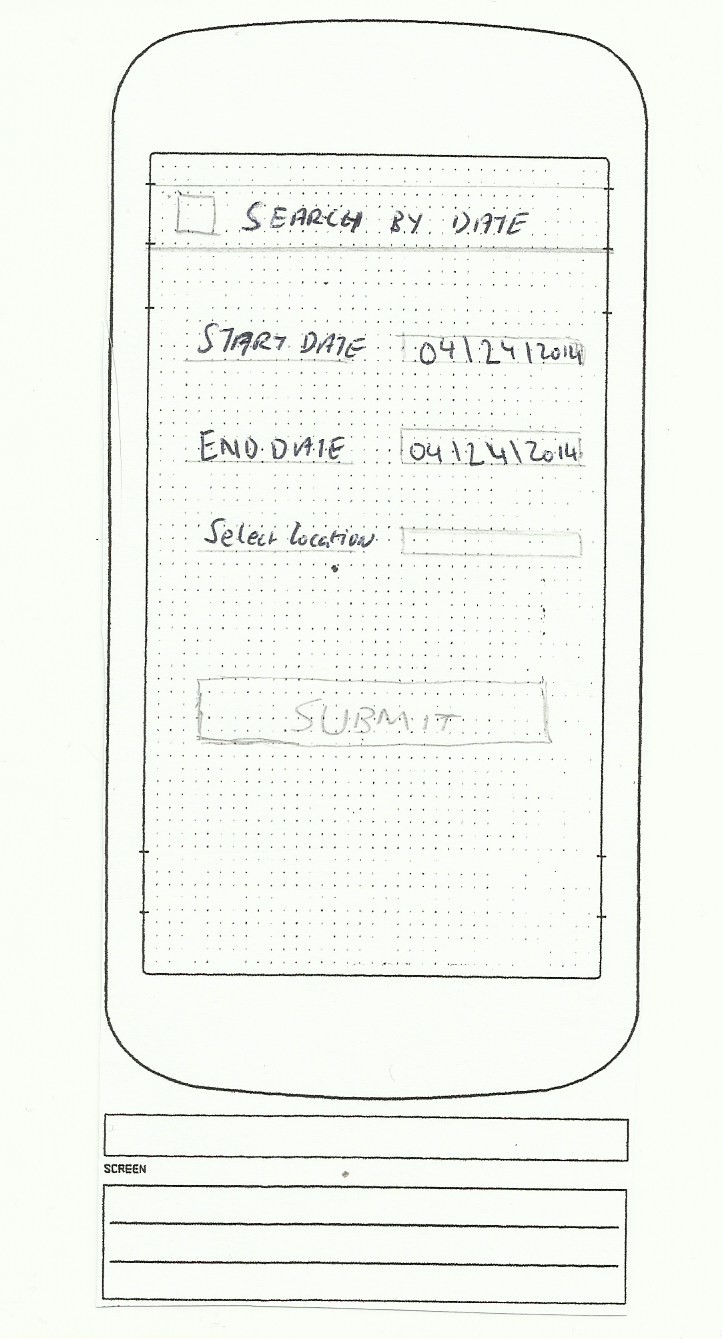 SEARCH BY DATE
START DATE 04\24\2014
END DATE 04\24\2014
Select location
SUBMIT
SCREEN